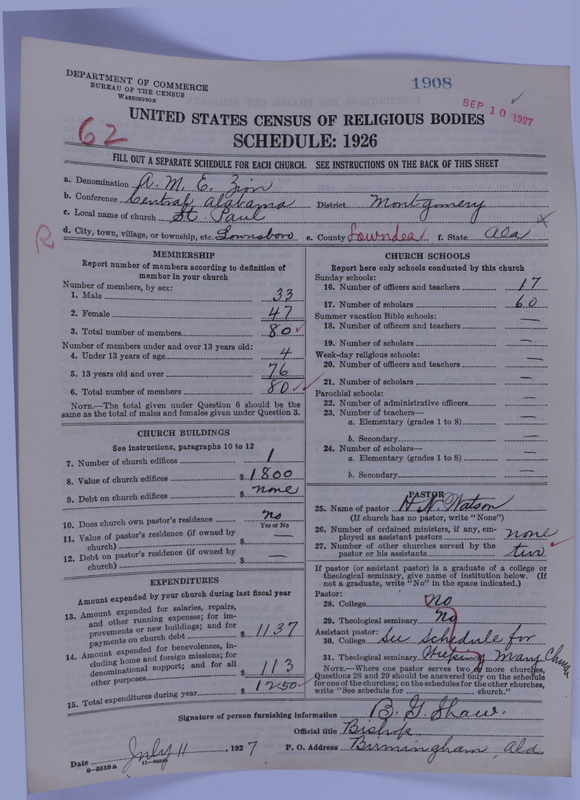 DEPARTMENT OF COMMERCE
BUREAU OF THE CENSUS
WASHINGTON
1908
SEP 10 1927
62
UNITED STATES CENSUS OF RELIGIOUS BODIES
SCHEDULE: 1926
FILL OUT A SEPARATE SCHEDULE FOR EACH CHURCH. SEE INSTRUCTIONS ON THE BACK OF THIS SHEET
a. Denomination A. M. E. Zion
b. Conference Central Alabama District Montgomery
c. Local name of church St. Paul
d. City, town, village, or township, etc. Lownsboro e. County Lowndes f. State Ala
R
MEMBERSHIP
Report number of members according to definition of
member in your church
Number of members, by sex:
1. Male 33
2. Female 47
3. Total number of members 80
Number of members under and over 13 years old:
4. Under 13 years of age 4
5. 13 years old and over 76
6. Total number of members 80
NOTE.—The total given under Question 6 should be the
same as the total of males and females given under Question 3.
CHURCH BUILDINGS
See instructions, paragraphs 10 to 12
7. Number of church edifices 1
8. Value of church edifices $ 1800
9. Debt on church edifices $ none
10. Does church own pastor's residence no
Yes or No
11. Value of pastor's residence (if owned by
church) $ —
12. Debt on pastor's residence (if owned by
church) $ —
EXPENDITURES
Amount expended by your church during last fiscal year
13. Amount expended for salaries, repairs,
and other running expenses; for im-
provements or new buildings; and for
payments on church debt $ 1137
14. Amount expended for benevolences, in-
cluding home and foreign missions; for
denominational support; and for all
other purposes $ 113
15. Total expenditures during year $ 1250
CHURCH SCHOOLS
Report here only schools conducted by this church
Sunday schools:
16. Number of officers and teachers 17
17. Number of scholars 60
Summer vacation Bible schools:
18. Number of officers and teachers —
19. Number of scholars —
Week-day religious schools:
20. Number of officers and teachers —
21. Number of scholars —
Parochial schools:
22. Number of administrative officers —
23. Number of teachers—
a. Elementary (grades 1 to 8) —
b. Secondary —
24. Number of scholars—
a. Elementary (grades 1 to 8) —
b. Secondary —
PASTOR
25. Name of pastor H. N. Watson
(If church has no pastor, write "None")
26. Number of ordained ministers, if any, em-
ployed as assistant pastors none
27. Number of other churches served by the
pastor or his assistants
If pastor (or assistant pastor) is a graduate of a college or
theological seminary, give name of institution below. (If
not a graduate, write "No" in the space indicated.)
Pastor:
28. College No
29. Theological seminary No
Assistant pastor:
30. College See Schedule for
31. Theological seminary Many
NOTE.—Where one pastor serves two or more churches,
Questions 28 and 29 should be answered only on the schedule
for one of the churches; on the schedules for the other churches,
write "See schedule for church."
Signature of person furnishing information B. G. Shaw.
Official title Bishop
Date July 11, 1927 P. O. Address Birmingham, Ala
8-5518a